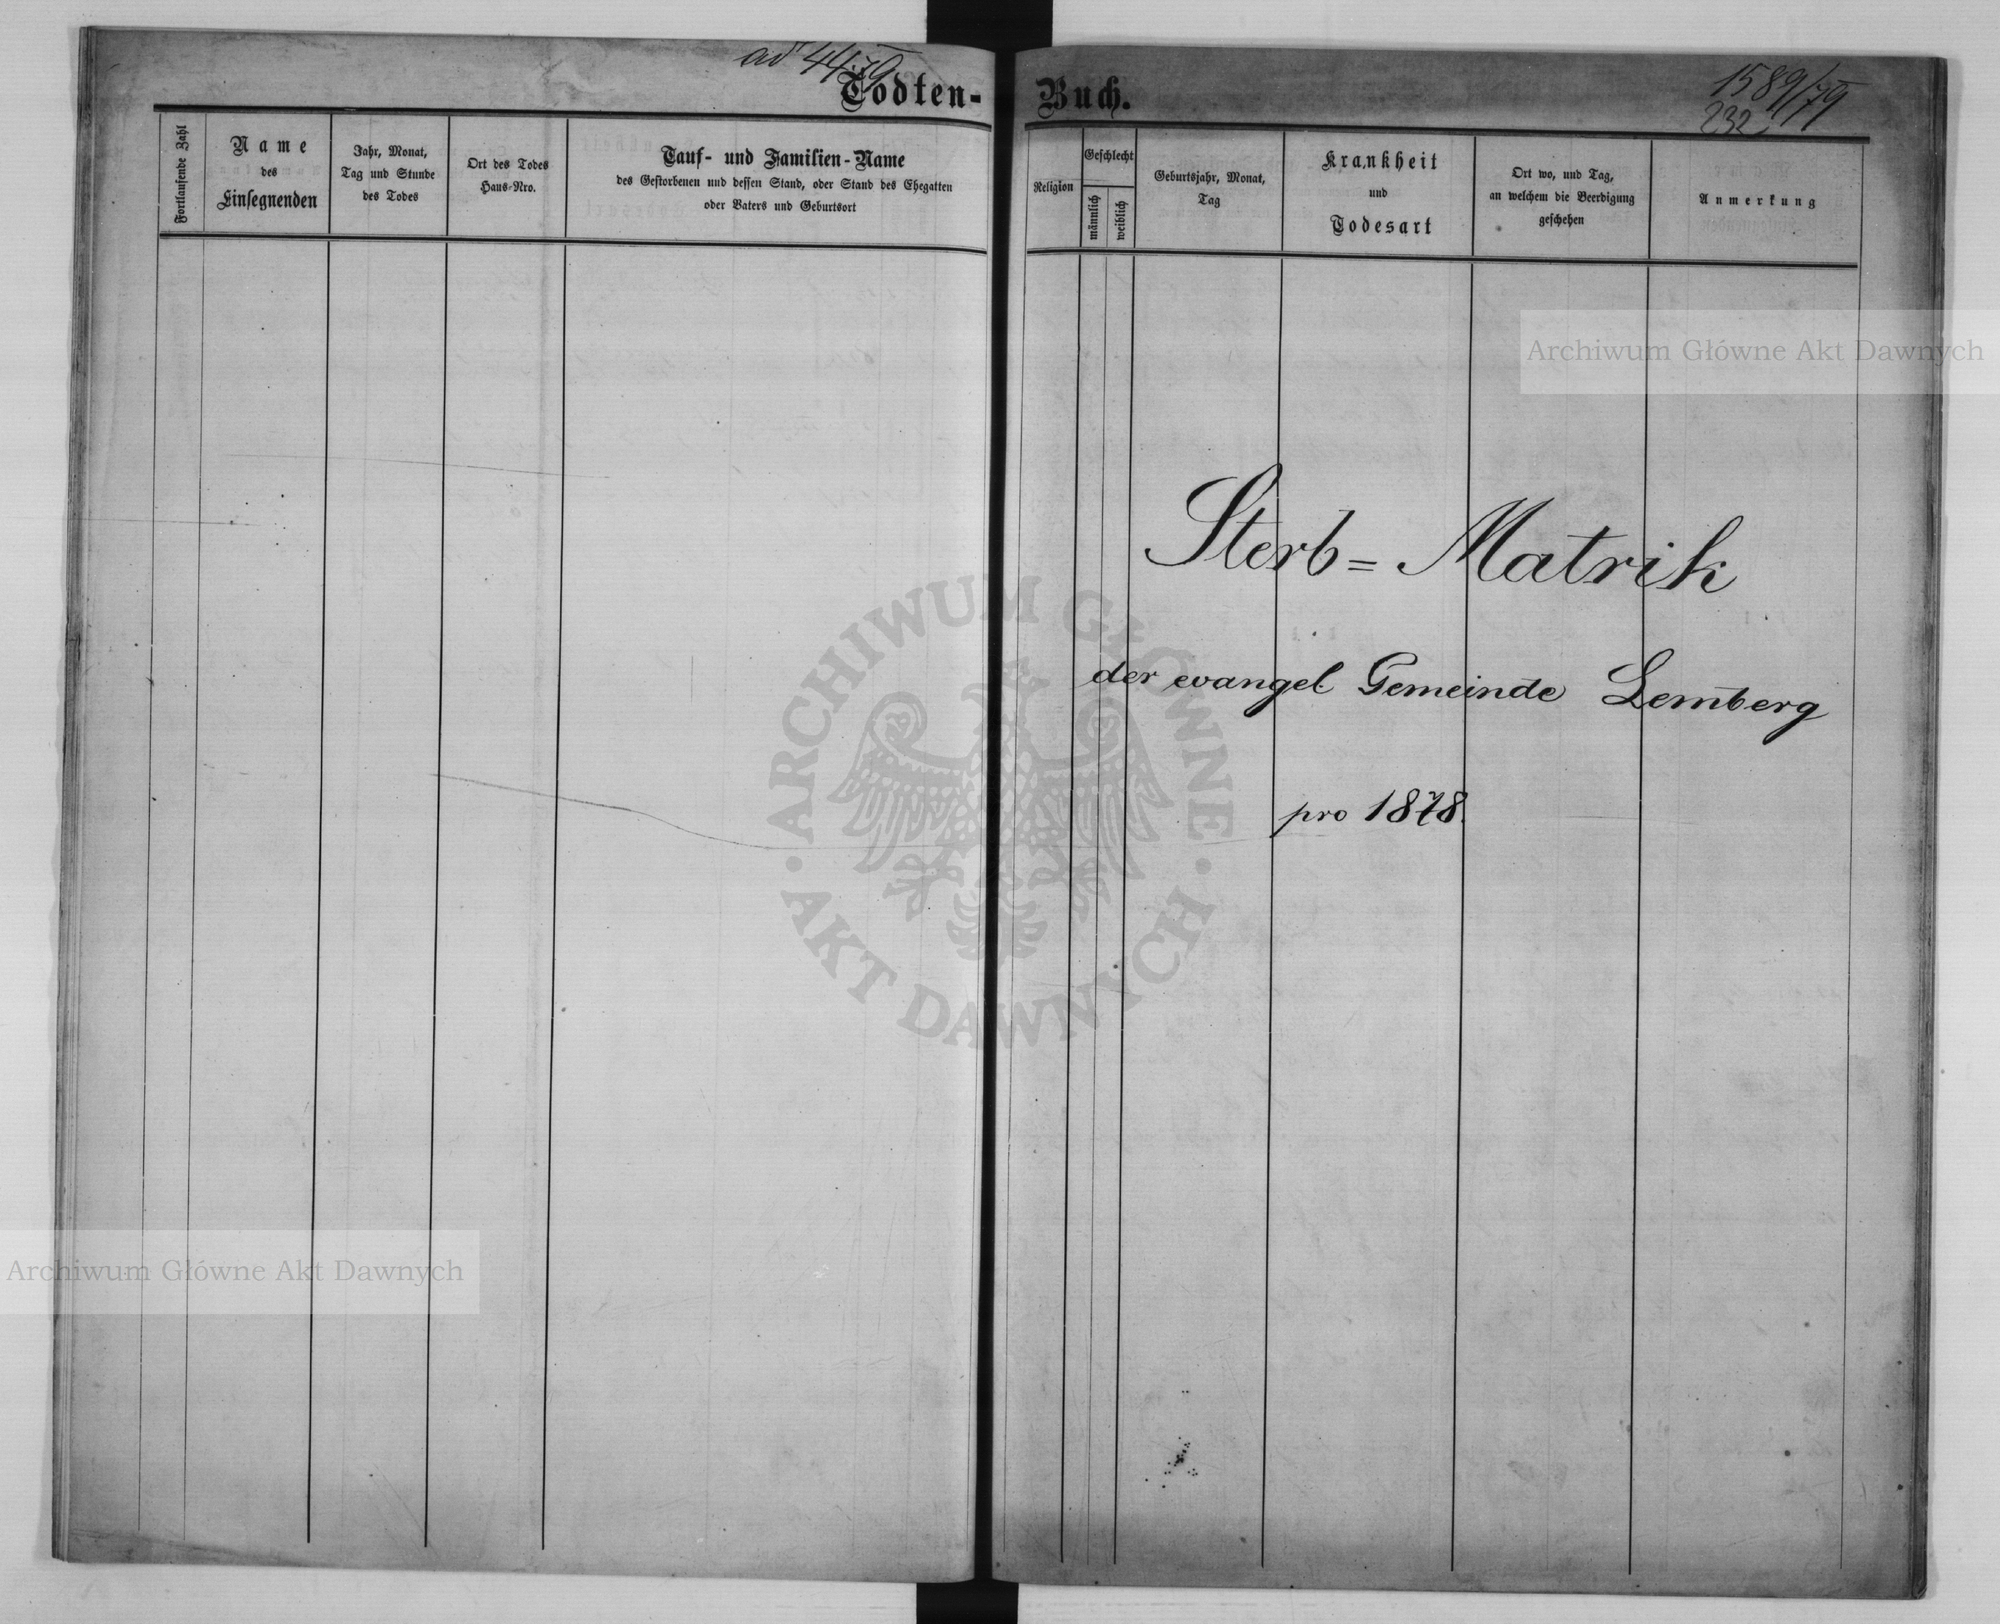 ad 44/79
Todten-
Fortlaufende Zahl
Name
des
Einsegnenden
Jahr, Monat,
Tag und Stunde
des Todes
Ort des Todes
Haus-Nro.
Tauf- und Familien-Name
des Gestorbenen und dessen Stand, oder Stand des Ehegatten
oder Vaters und Geburtsort
Buch.
1589/79
232
Religion
Geschlecht
männlich
weiblich
Geburtsjahr, Monat,
Tag
Krankheit
und
Todesart
Ort wo, und Tag,
an welchem die Beerdigung
geschehen
Anmerkung
Archiwum Główne Akt Dawnych
Sterb= Matrik
der evangel. Gemeinde Lemberg
pro 1878.
ARCHIWUM GŁÓWNE · AKT DAWNYCH ·
Archiwum Główne Akt Dawnych